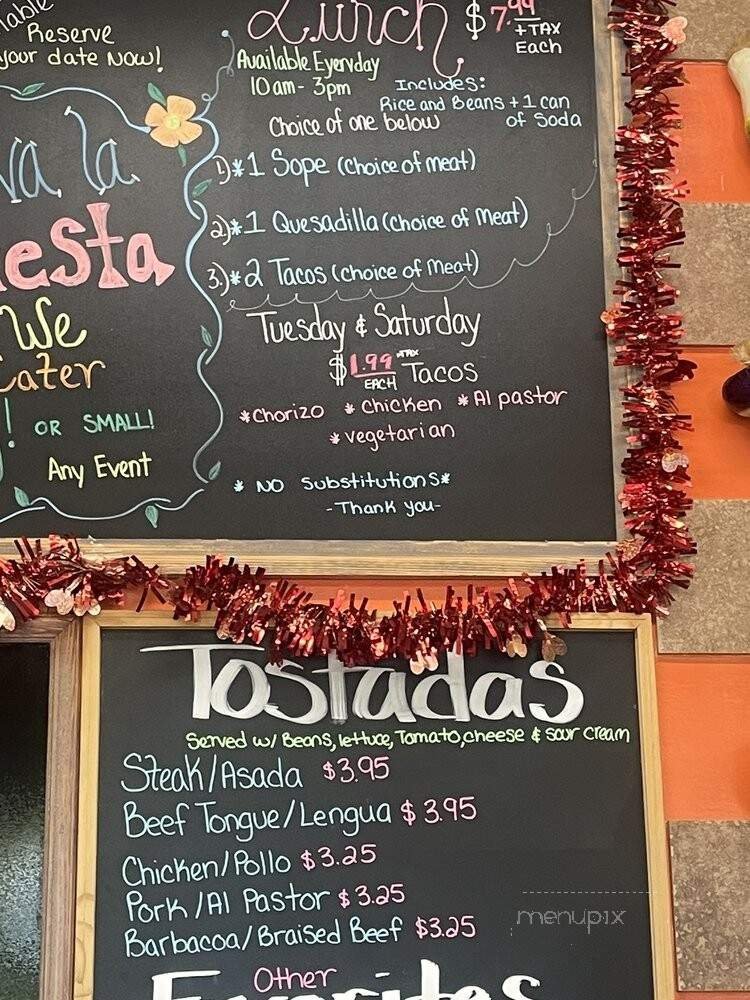 Reserve
your date Now!
la
We
OR SMALL!
Any Event
Lunch $7.99
+TAX
Each
Available Eyervday
10am - 3pm
Includes:
Rice and Beans + 1 can
of Soda
Choice of one below
1.)*1 Sope (Choice of meat)
2.)*1 Quesadilla (Choice of Meat)
3.)*2 Tacos (choice of Meat)
Tuesday & Saturday
$1.99 +TAX
EACH Tacos
*Chorizo *Chicken *Al pastor
*vegetarian
* NO Substitutions*
-Thank you-
Tostadas
Served w/ Beans, lettuce, Tomato, cheese & sour cream
Steak/Asada $3.95
Beef Tongue/Lengua $3.95
Chicken/Pollo $3.25
Pork/Al Pastor $3.25
Barbacoa/Braised Beef $3.25
Other
Favorites
menupix